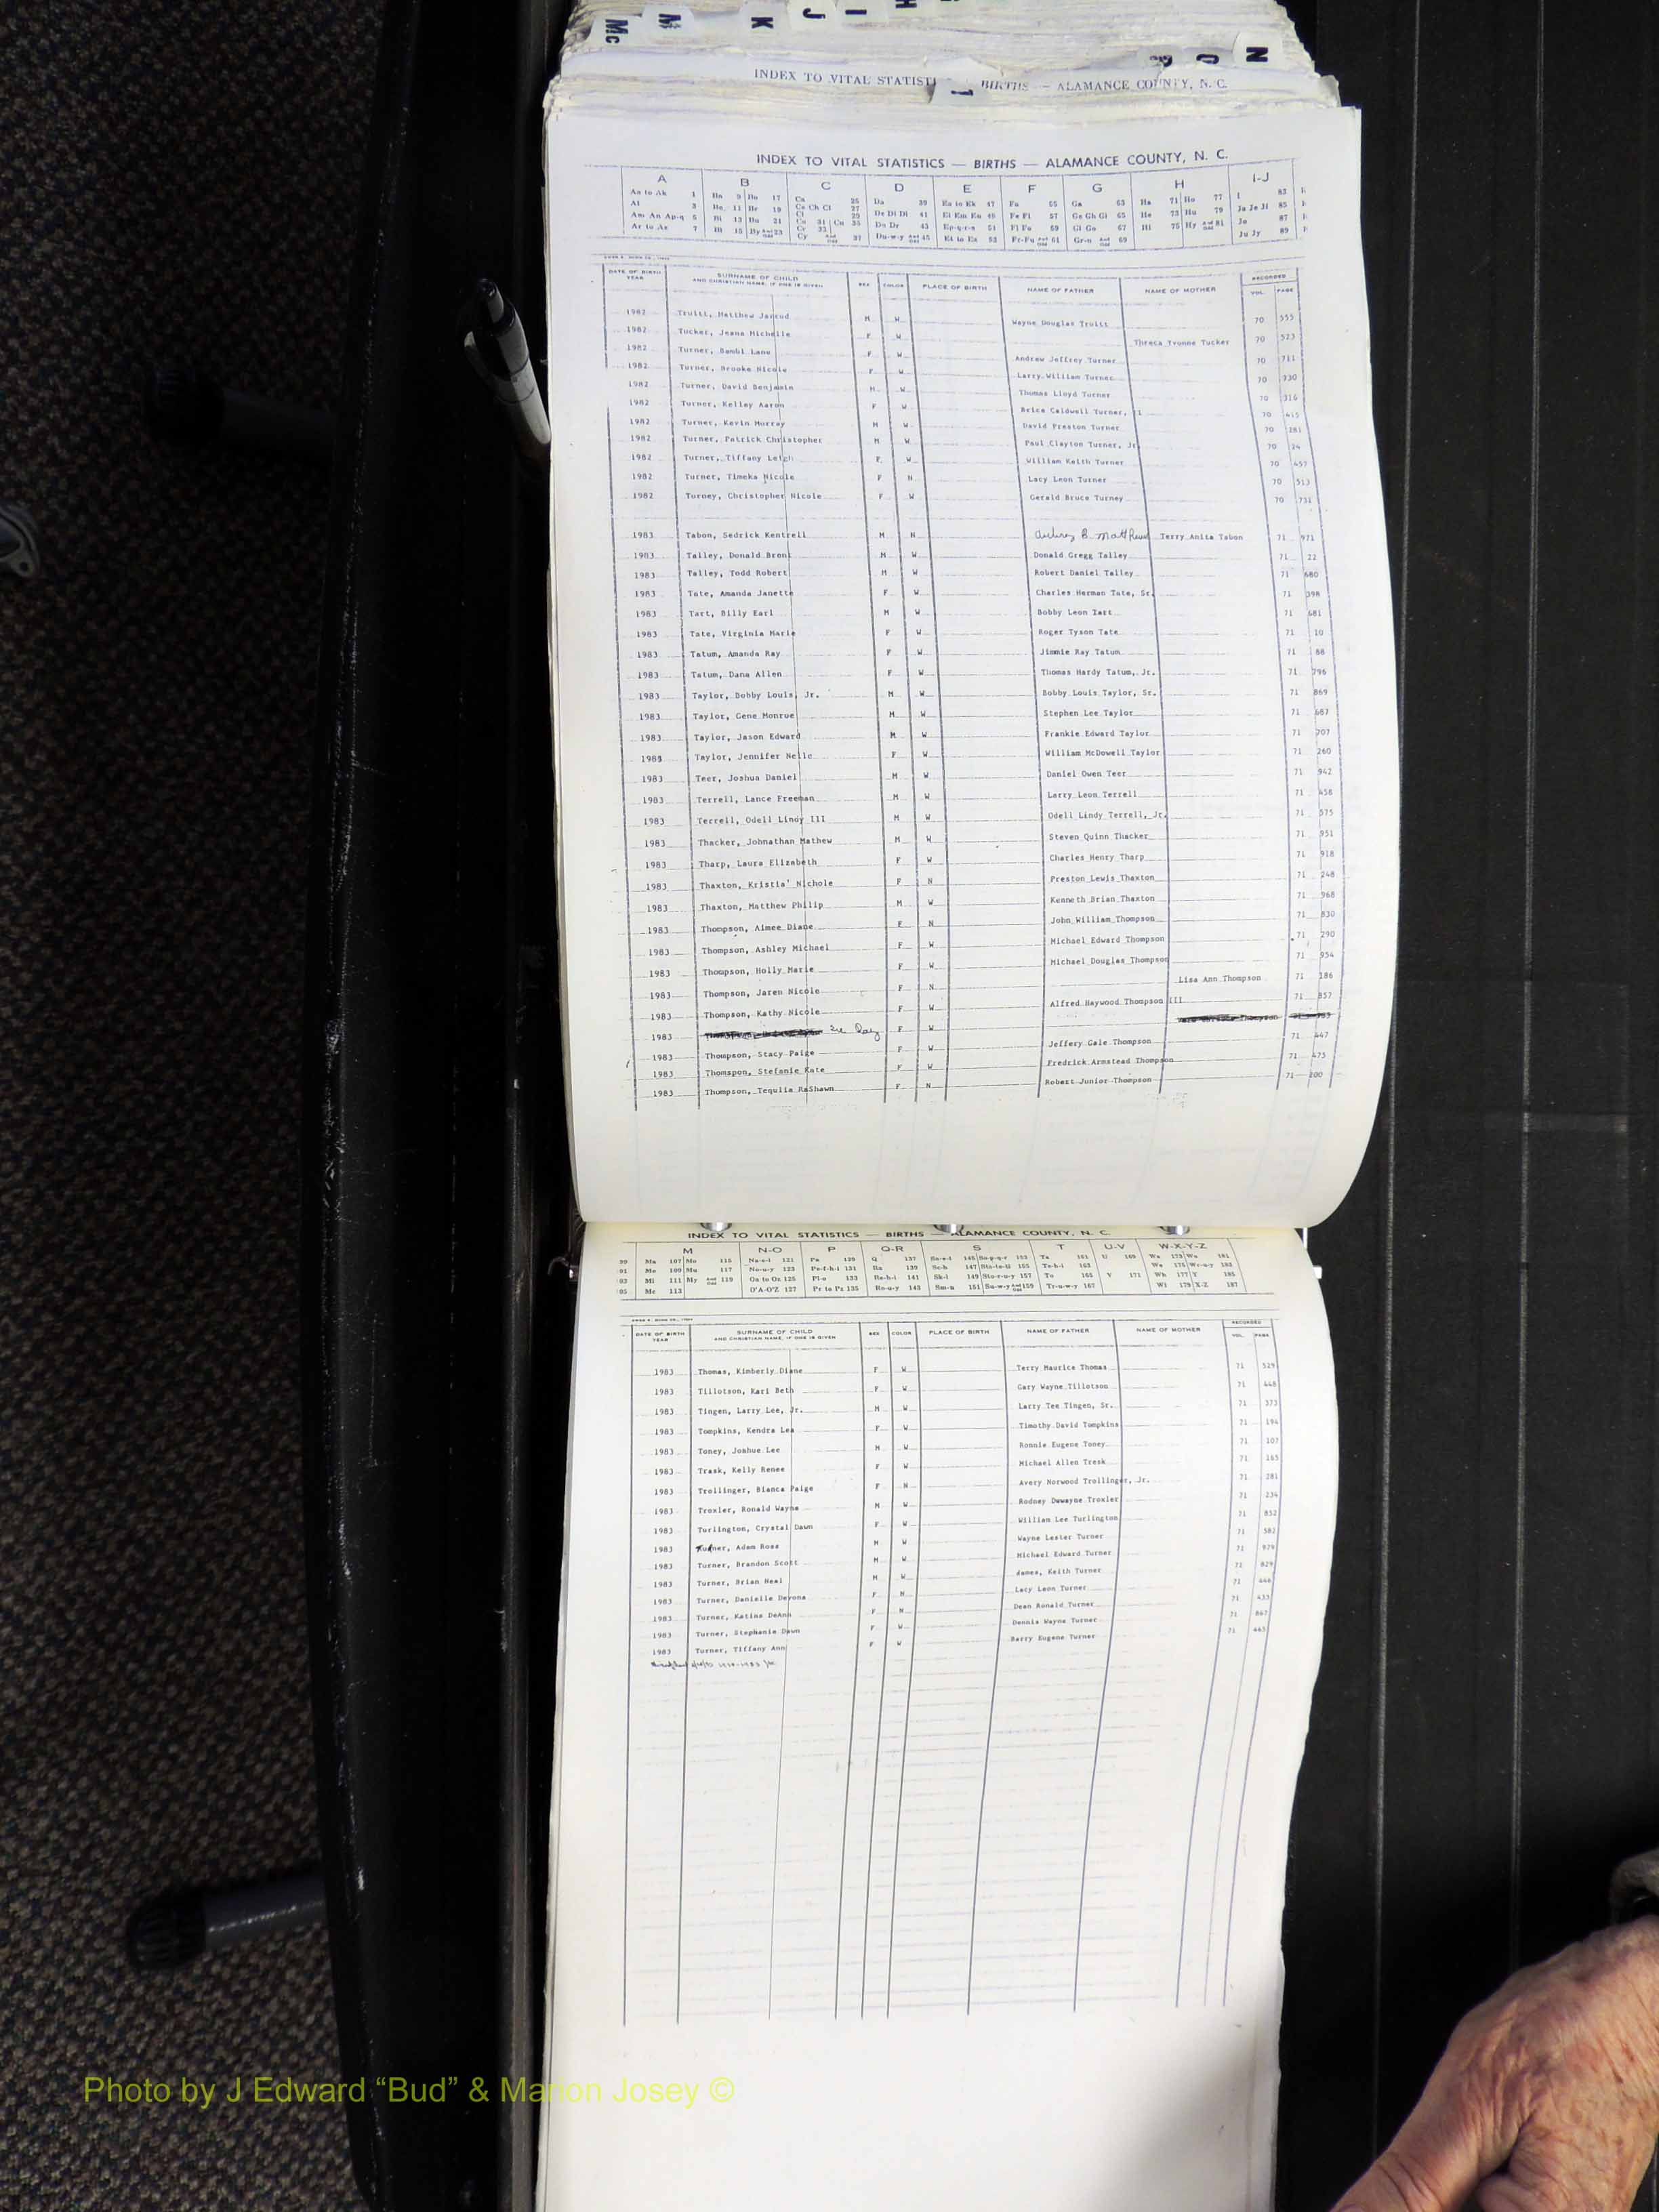 Mc M K J I H
N
INDEX TO VITAL STATISTI BIRTHS — ALAMANCE COUNTY, N. C.
INDEX TO VITAL STATISTICS — BIRTHS — ALAMANCE COUNTY, N. C.
A B C D E F G H I-J
DATE OF BIRTH YEAR SURNAME OF CHILD AND CHRISTIAN NAME, IF ONE IS GIVEN SEX COLOR PLACE OF BIRTH NAME OF FATHER NAME OF MOTHER RECORDED VOL. PAGE
1982 Truitt, Matthew Jarrod M W Wayne Douglas Truitt 70 555
1982 Tucker, Jeana Michelle F W Threca Yvonne Tucker 70 523
1982 Turner, Bambi Lane F W Andrew Jeffrey Turner 70 711
1982 Turner, Brooke Nicole F W Larry William Turner 70 930
1982 Turner, David Benjamin M W Thomas Lloyd Turner 70 316
1982 Turner, Kelley Aaron F W Brice Caldwell Turner, 70 415
1982 Turner, Kevin Murray M W David Preston Turner 70 281
1982 Turner, Patrick Christopher M W Paul Clayton Turner, Jr 70 24
1982 Turner, Tiffany Leigh F W William Keith Turner 70 457
1982 Turner, Timeka Nicole F N Lacy Leon Turner 70 513
1982 Turney, Christopher Nicole F W Gerald Bruce Turney 70 731
1983 Tabon, Sedrick Kentrell M N Aubrey B. Matthews Terry Anita Tabon 71 971
1983 Talley, Donald Bront M W Donald Gregg Talley 71 22
1983 Talley, Todd Robert M W Robert Daniel Talley 71 680
1983 Tate, Amanda Janette F W Charles Herman Tate, Sr. 71 398
1983 Tart, Billy Earl M W Bobby Leon Tart 71 681
1983 Tate, Virginia Marie F W Roger Tyson Tate 71 10
1983 Tatum, Amanda Ray F W Jimmie Ray Tatum 71 88
1983 Tatum, Dana Allen F W Thomas Hardy Tatum, Jr. 71 796
1983 Taylor, Bobby Louis, Jr. M W Bobby Louis Taylor, Sr. 71 869
1983 Taylor, Gene Monroe M W Stephen Lee Taylor 71 687
1983 Taylor, Jason Edward M W Frankie Edward Taylor 71 707
1983 Taylor, Jennifer Nelle F W William McDowell Taylor 71 260
1983 Teer, Joshua Daniel M W Daniel Owen Teer 71 942
1983 Terrell, Lance Freeman M W Larry Leon Terrell 71 458
1983 Terrell, Odell Lindy III M W Odell Lindy Terrell, Jr. 71 575
1983 Thacker, Johnathan Mathew M W Steven Quinn Thacker 71 951
1983 Tharp, Laura Elizabeth F W Charles Henry Tharp 71 918
1983 Thaxton, Kristia' Nichole F N Preston Lewis Thaxton 71 248
1983 Thaxton, Matthew Philip M W Kenneth Brian Thaxton 71 968
1983 Thompson, Aimee Diane F N John William Thompson 71 830
1983 Thompson, Ashley Michael F W Michael Edward Thompson 71 290
1983 Thompson, Holly Marie F W Michael Douglas Thompson 71 954
1983 Thompson, Jaren Nicole F N Lisa Ann Thompson 71 186
1983 Thompson, Kathy Nicole F W Alfred Haywood Thompson III 71 857
1983 F W
1983 Thompson, Stacy Paige F W Jeffery Gale Thompson 71 447
1983 Thomspon, Stefanie Kate F W Fredrick Armstead Thompson 71 473
1983 Thompson, Tequlia RaShawn F N Robert Junior Thompson 71 200
INDEX TO VITAL STATISTICS — BIRTHS — ALAMANCE COUNTY, N. C.
M N-O P Q-R S T U-V W-X-Y-Z
DATE OF BIRTH YEAR SURNAME OF CHILD AND CHRISTIAN NAME, IF ONE IS GIVEN SEX COLOR PLACE OF BIRTH NAME OF FATHER NAME OF MOTHER RECORDED VOL. PAGE
1983 Thomas, Kimberly Diane F W Terry Maurice Thomas 71 529
1983 Tillotson, Kari Beth F W Gary Wayne Tillotson 71 448
1983 Tingen, Larry Lee, Jr. M W Larry Tee Tingen, Sr. 71 373
1983 Tompkins, Kendra Lea F W Timothy David Tompkins 71 194
1983 Toney, Joshue Lee M W Ronnie Eugene Toney 71 107
1983 Trask, Kelly Renee F W Michael Allen Tresk 71 165
1983 Trollinger, Bianca Paige F N Avery Norwood Trollinger, Jr. 71 281
1983 Troxler, Ronald Wayne M W Rodney Dewayne Troxler 71 234
1983 Turlington, Crystal Dawn F W William Lee Turlington 71 852
1983 Turner, Adam Ross M W Wayne Lester Turner 71 582
1983 Turner, Brandon Scott M W Michael Edward Turner 71 979
1983 Turner, Brian Neal M W James, Keith Turner 71 829
1983 Turner, Danielle Devona F N Lacy Leon Turner 71 446
1983 Turner, Katina DeAnn F N Dean Ronald Turner 71 433
1983 Turner, Stephanie Dawn F W Dennis Wayne Turner 71 867
1983 Turner, Tiffany Ann F W Barry Eugene Turner 71 465
Photo by J Edward “Bud” & Marion Josey ©